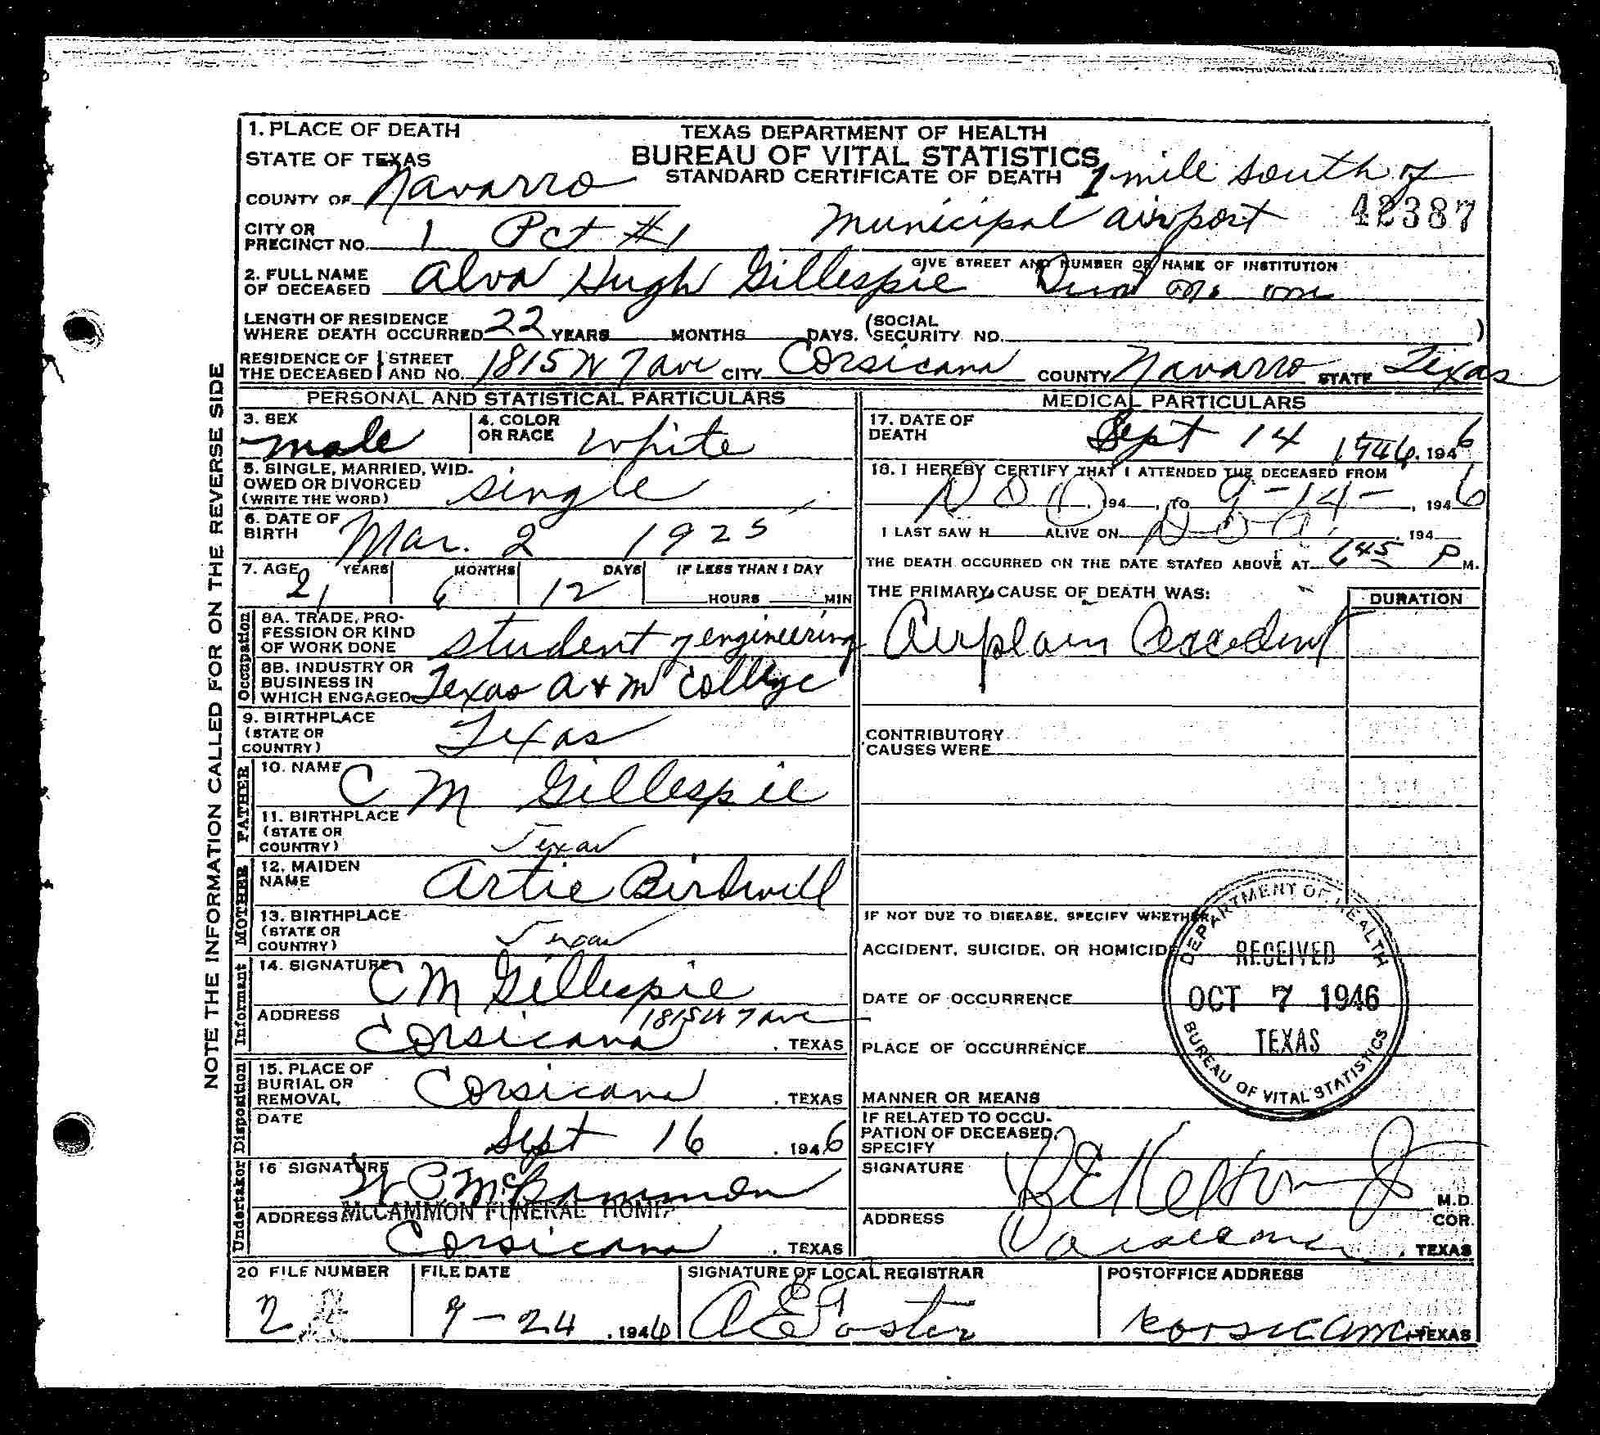 1. PLACE OF DEATH
STATE OF TEXAS
TEXAS DEPARTMENT OF HEALTH
BUREAU OF VITAL STATISTICS
STANDARD CERTIFICATE OF DEATH
COUNTY OF Navarro
1 mile south of
CITY OR PRECINCT NO. 1 Pct #1
Municipal airport
42387
GIVE STREET AND NUMBER OR NAME OF INSTITUTION
2. FULL NAME OF DECEASED Alva Hugh Gillespie
LENGTH OF RESIDENCE WHERE DEATH OCCURRED 22 YEARS MONTHS DAYS. (SOCIAL SECURITY NO. )
RESIDENCE OF THE DECEASED STREET AND NO. 1815 W 7 ave CITY Corsicana COUNTY Navarro STATE Texas
NOTE THE INFORMATION CALLED FOR ON THE REVERSE SIDE
PERSONAL AND STATISTICAL PARTICULARS
3. SEX male
4. COLOR OR RACE white
5. SINGLE, MARRIED, WIDOWED OR DIVORCED (WRITE THE WORD) single
6. DATE OF BIRTH Mar. 2 1925
7. AGE 21 YEARS 6 MONTHS 12 DAYS IF LESS THAN 1 DAY HOURS MIN
Occupation
8A. TRADE, PROFESSION OR KIND OF WORK DONE student of engineering
8B. INDUSTRY OR BUSINESS IN WHICH ENGAGED Texas A & M College
9. BIRTHPLACE (STATE OR COUNTRY) Texas
FATHER
10. NAME C M Gillespie
11. BIRTHPLACE (STATE OR COUNTRY) Texas
MOTHER
12. MAIDEN NAME Artie Birdwell
13. BIRTHPLACE (STATE OR COUNTRY) Texas
Informant
14. SIGNATURE C M Gillespie
ADDRESS 1815 W 7 ave
Corsicana , TEXAS
Disposition
15. PLACE OF BURIAL OR REMOVAL Corsicana , TEXAS
DATE Sept 16 , 1946
Undertaker
16 SIGNATURE W C McCammon
ADDRESS McCAMMON FUNERAL HOME
Corsicana , TEXAS
MEDICAL PARTICULARS
17. DATE OF DEATH Sept 14 1946, 1946
18. I HEREBY CERTIFY THAT I ATTENDED THE DECEASED FROM
D O A , 194 , TO 9-14- , 1946
I LAST SAW H ALIVE ON D O A , 194
THE DEATH OCCURRED ON THE DATE STATED ABOVE AT 645 P M.
THE PRIMARY CAUSE OF DEATH WAS: DURATION
Airplain Accident
CONTRIBUTORY CAUSES WERE
IF NOT DUE TO DISEASE, SPECIFY WHETHER
ACCIDENT, SUICIDE, OR HOMICIDE
DATE OF OCCURRENCE
PLACE OF OCCURRENCE
MANNER OR MEANS
DEPARTMENT OF HEALTH
RECEIVED
OCT 7 1946
TEXAS
BUREAU OF VITAL STATISTICS
IF RELATED TO OCCUPATION OF DECEASED, SPECIFY
SIGNATURE M.D.
ADDRESS Corsicana COR.
, TEXAS
20 FILE NUMBER 2
FILE DATE 9-24 , 1946
SIGNATURE OF LOCAL REGISTRAR A E Foster
POSTOFFICE ADDRESS Korsicana, TEXAS